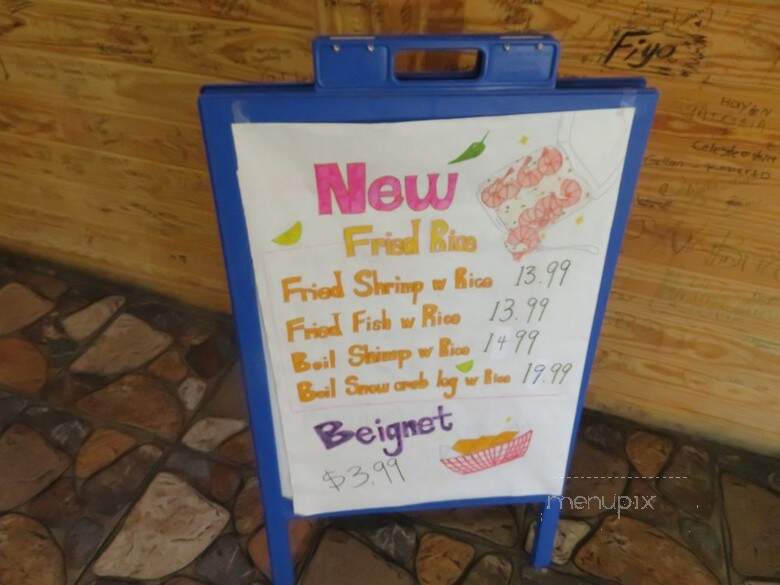 Fiyo
HAYDEN
New
Fried Rice
Fried Shrimp w Rice 13.99
Fried Fish w Rice 13.99
Boil Shimp w Rice 14.99
Boil Snow crab leg w Rice 19.99
Beignet
$3.99
menupix